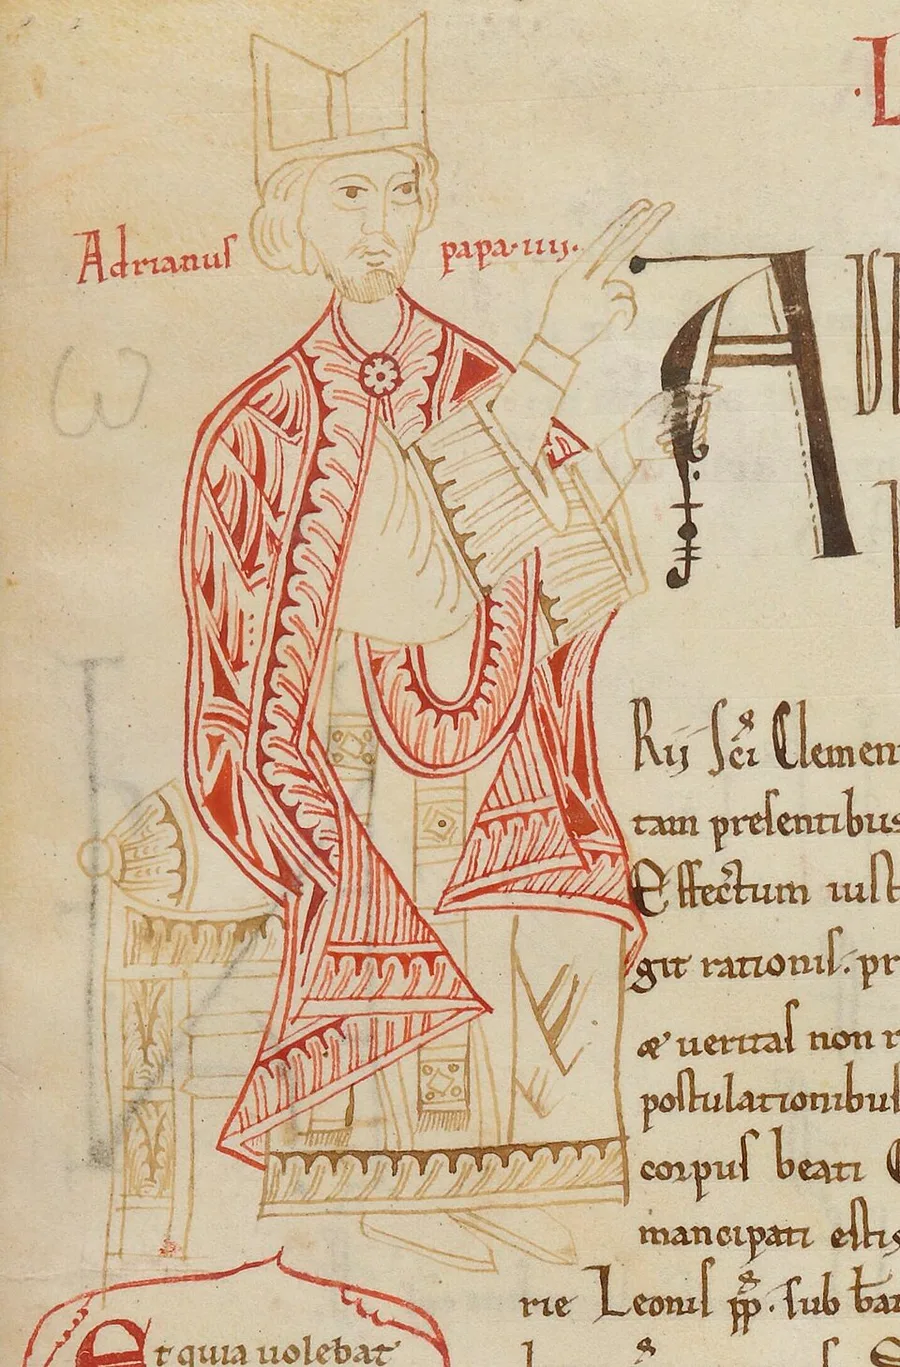 L
Adrianus papa·iiij·
A
Rij sc̄i Clemen
tam presentibus
Effectum iust
git rationis. pr
æ ueritas non r
postulationibus
corpus beati
mancipati estis
rie Leonis pp̄. sub bar
Et quia uolebat